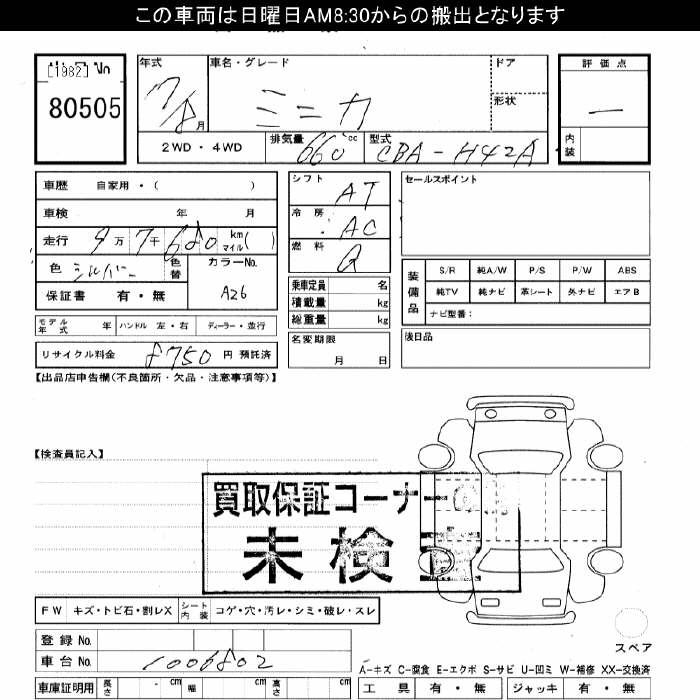 この車両は日曜日AM8:30からの搬出となります
[1982] No
80505
年式
17/8月
車名・グレード
ミニカ
ドア
形状
評価点
—
内装
2WD・4WD
排気量 660 cc
型式 CBA-H42A
車歴 自家用・( )
車検 年 月
走行 9万7千680 km マイル( )
色 シルバー 色替 カラーNo. A26
保証書 有・無
モデル年式 年 ハンドル 左・右 ディーラー・並行
リサイクル料金 8750 円 預託済
シフト AT
冷房 AC
燃料 G
乗車定員 名
積載量 kg
総重量 kg
名変期限 月 日
セールスポイント
装備品
S/R 純A/W P/S P/W ABS
純TV 純ナビ 革シート 外ナビ エアB
ナビ型番:
後日品
【出品店申告欄(不良箇所・欠品・注意事項等)】
【検査員記入】
買取保証コーナー
未検
FW キズ・トビ石・割レX シート内装 コゲ・穴・汚レ・シミ・破レ・スレ
登録No.
車台No. 1006802
車庫証明用 長さ cm 幅 cm 高さ cm
スペア
A-キズ C-腐食 E-エクボ S-サビ U-凹ミ W-補修 XX-交換済
工具 有・無 ジャッキ 有・無